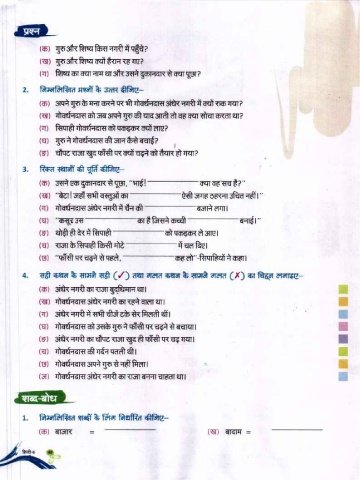 प्रश्न
(क) गुरु और शिष्य किस नगरी में पहुँचे?
(ख) गुरु और शिष्य क्यों हैरान रह गए?
(ग) शिष्य का क्या नाम था और उसने दुकानदार से क्या पूछा?
2. निम्नलिखित प्रश्नों के उत्तर दीजिए–
(क) अपने गुरु के मना करने पर भी गोवर्धनदास अंधेर नगरी में क्यों रुक गया?
(ख) गोवर्धनदास को जब अपने गुरु की याद आती तो वह क्या सोचा करता था?
(ग) सिपाही गोवर्धनदास को पकड़कर क्यों लाए?
(घ) गुरु ने गोवर्धनदास की जान कैसे बचाई?
(ङ) चौपट राजा खुद फाँसी पर क्यों चढ़ने को तैयार हो गया?
3. रिक्त स्थानों की पूर्ति कीजिए–
(क) उसने एक दुकानदार से पूछा, “भाई! क्या वह सच है?”
(ख) “बेटा! जहाँ सभी वस्तुओं का ऐसी जगह ठहरना उचित नहीं।”
(ग) गोवर्धनदास अंधेर नगरी में चैन की बजाने लगा।
(घ) “कसूर उस का है जिसने कच्ची बनाई।”
(ङ) थोड़ी ही देर में सिपाही को पकड़कर ले आए।
(च) राजा के सिपाही किसी मोटे में चल दिए।
(छ) “फाँसी पर चढ़ने से पहले, कह लो”–सिपाहियों ने कहा।
4. सही कथन के सामने सही (✓) तथा गलत कथन के सामने गलत (✗) का चिह्न लगाइए–
(क) अंधेर नगरी का राजा बुद्धिमान था।
(ख) गोवर्धनदास अंधेर नगरी का रहने वाला था।
(ग) अंधेर नगरी में सभी चीजें टके सेर मिलती थीं।
(घ) गोवर्धनदास को उसके गुरु ने फाँसी पर चढ़ने से बचाया।
(ङ) अंधेर नगरी का चौपट राजा खुद ही फाँसी पर चढ़ गया।
(च) गोवर्धनदास की गर्दन पतली थी।
(छ) गोवर्धनदास अपने गुरु से नहीं मिला।
(ज) गोवर्धनदास अंधेर नगरी का राजा बनना चाहता था।
शब्द-बोध
1. निम्नलिखित शब्दों के लिंग निर्धारित कीजिए–
(क) बाजार = (ख) बादाम =